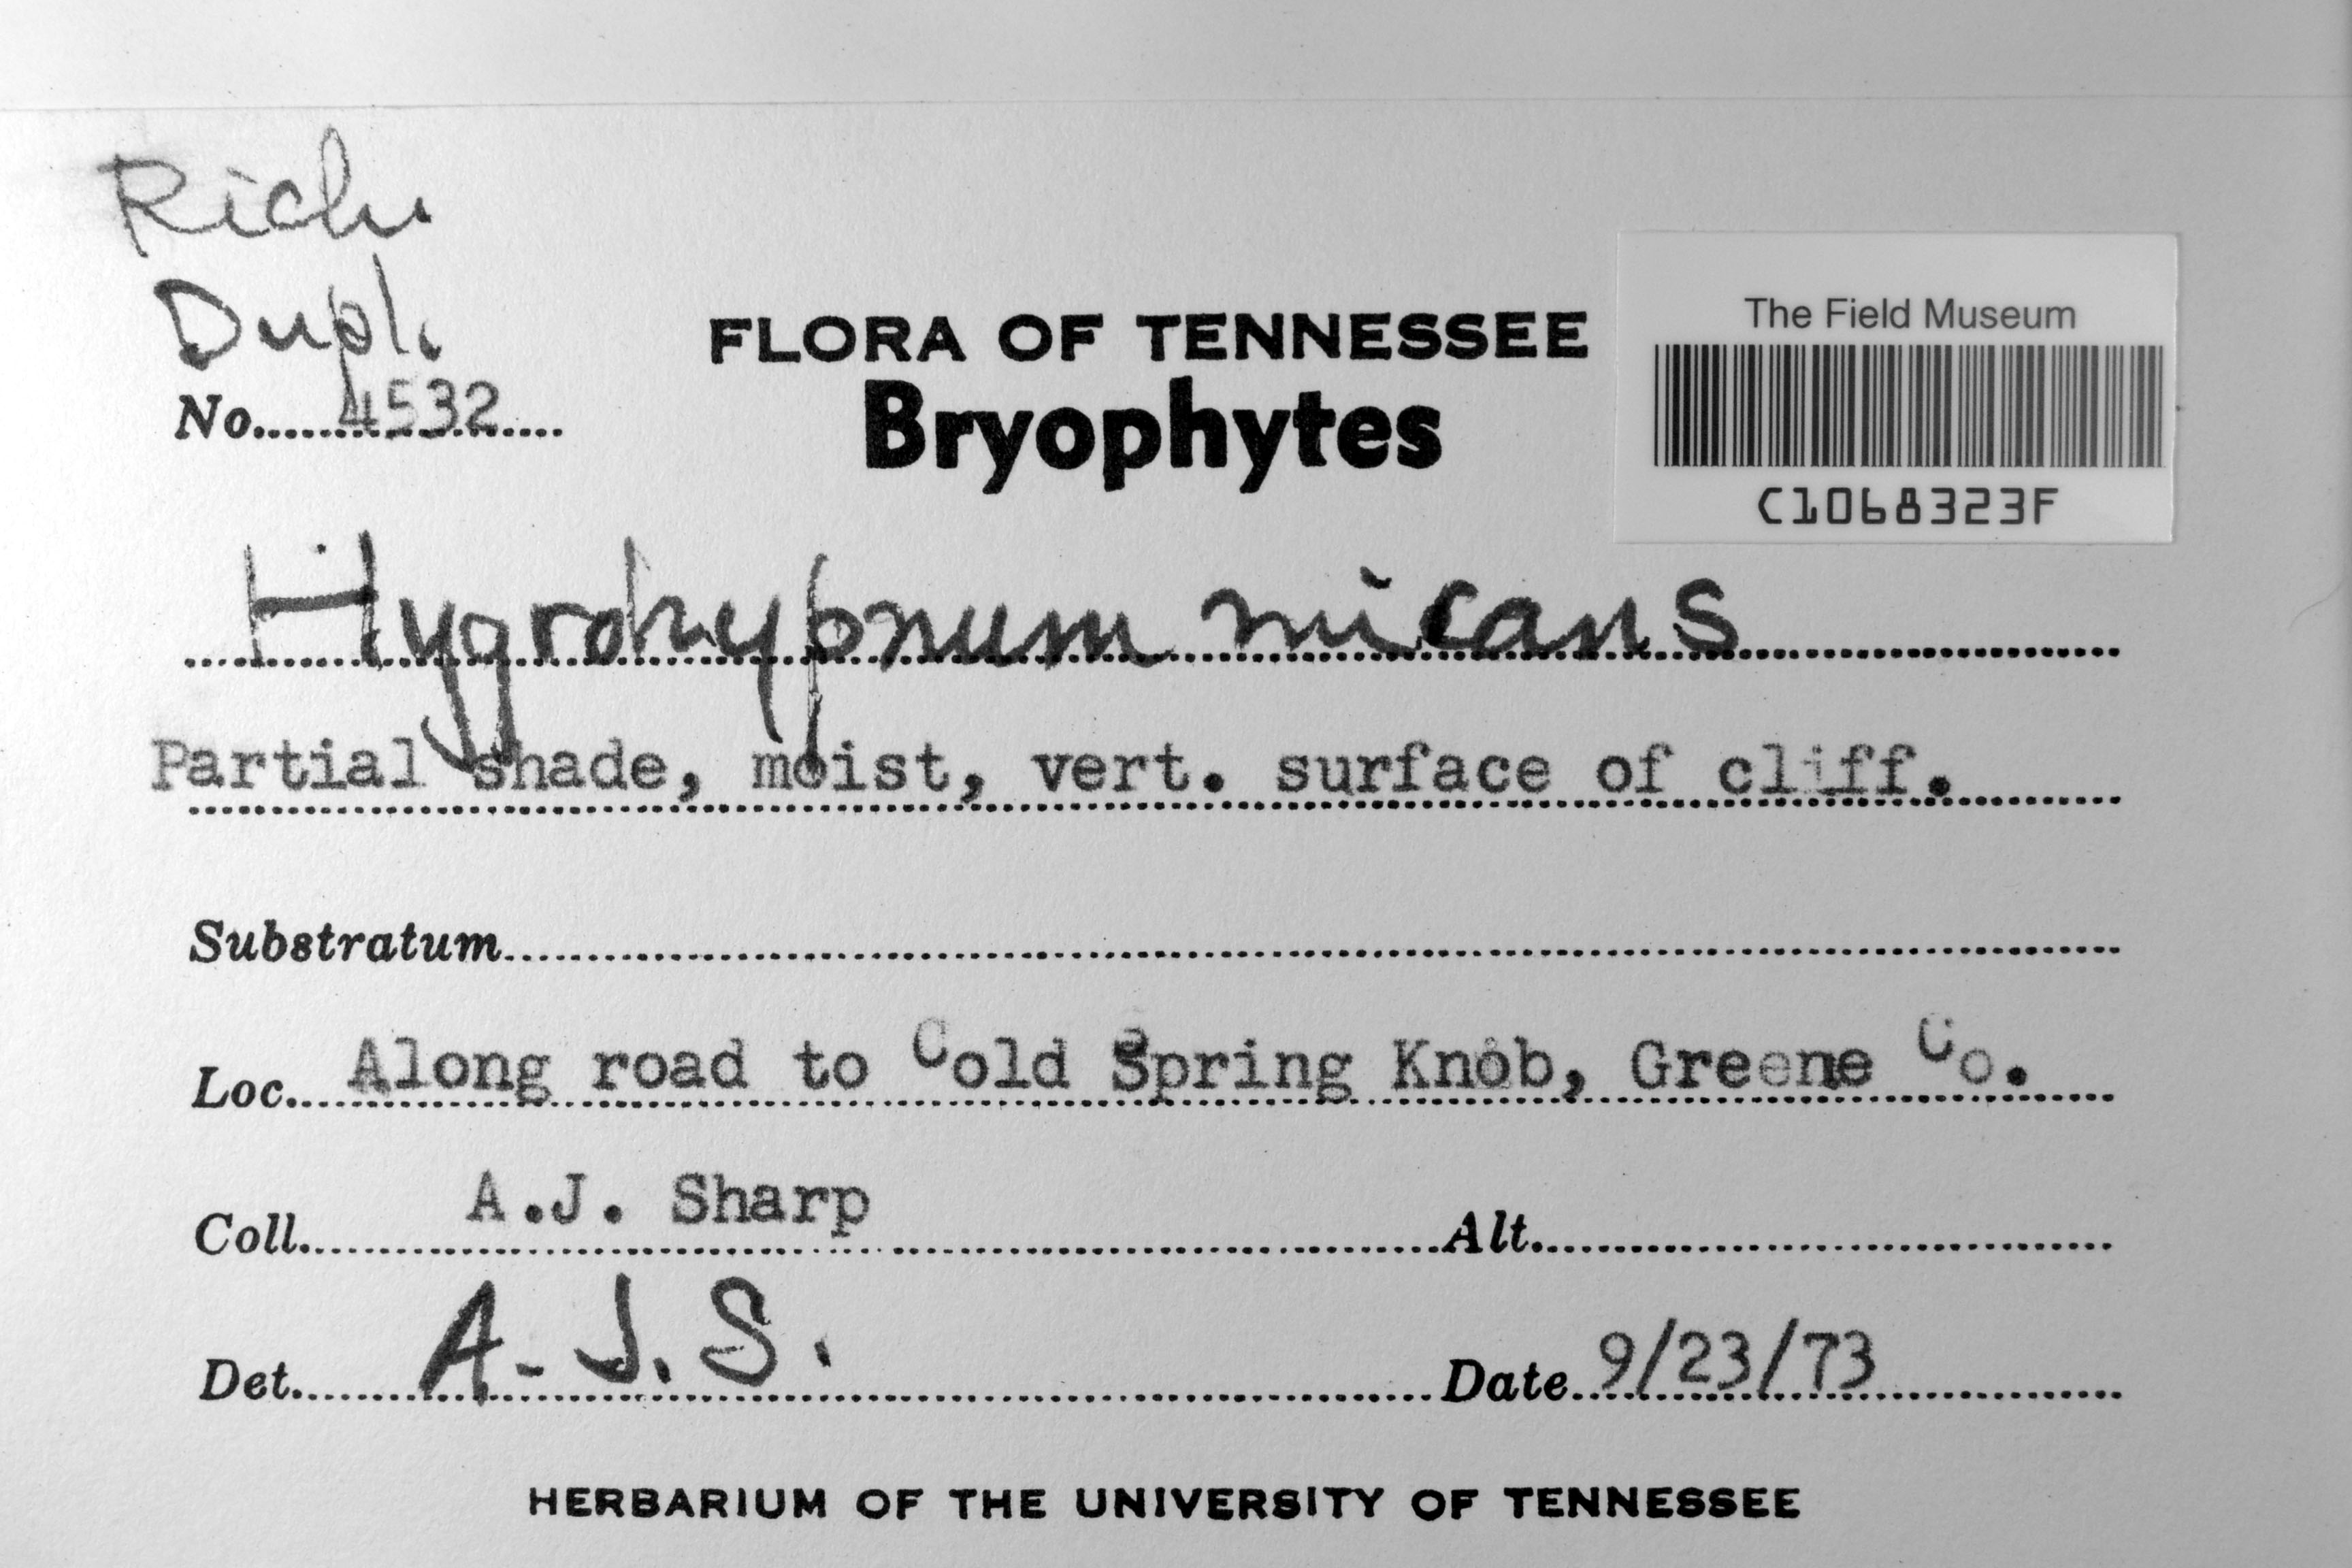 Rich.
Dupl.
No. 4532
FLORA OF TENNESSEE
Bryophytes
The Field Museum
C1068323F
Hygrohypnum micans
Partial shade, moist, vert. surface of cliff.
Substratum
Loc. Along road to Cold Spring Knob, Greene Co.
Coll. A.J. Sharp Alt.
Det. A.J.S. Date 9/23/73
HERBARIUM OF THE UNIVERSITY OF TENNESSEE